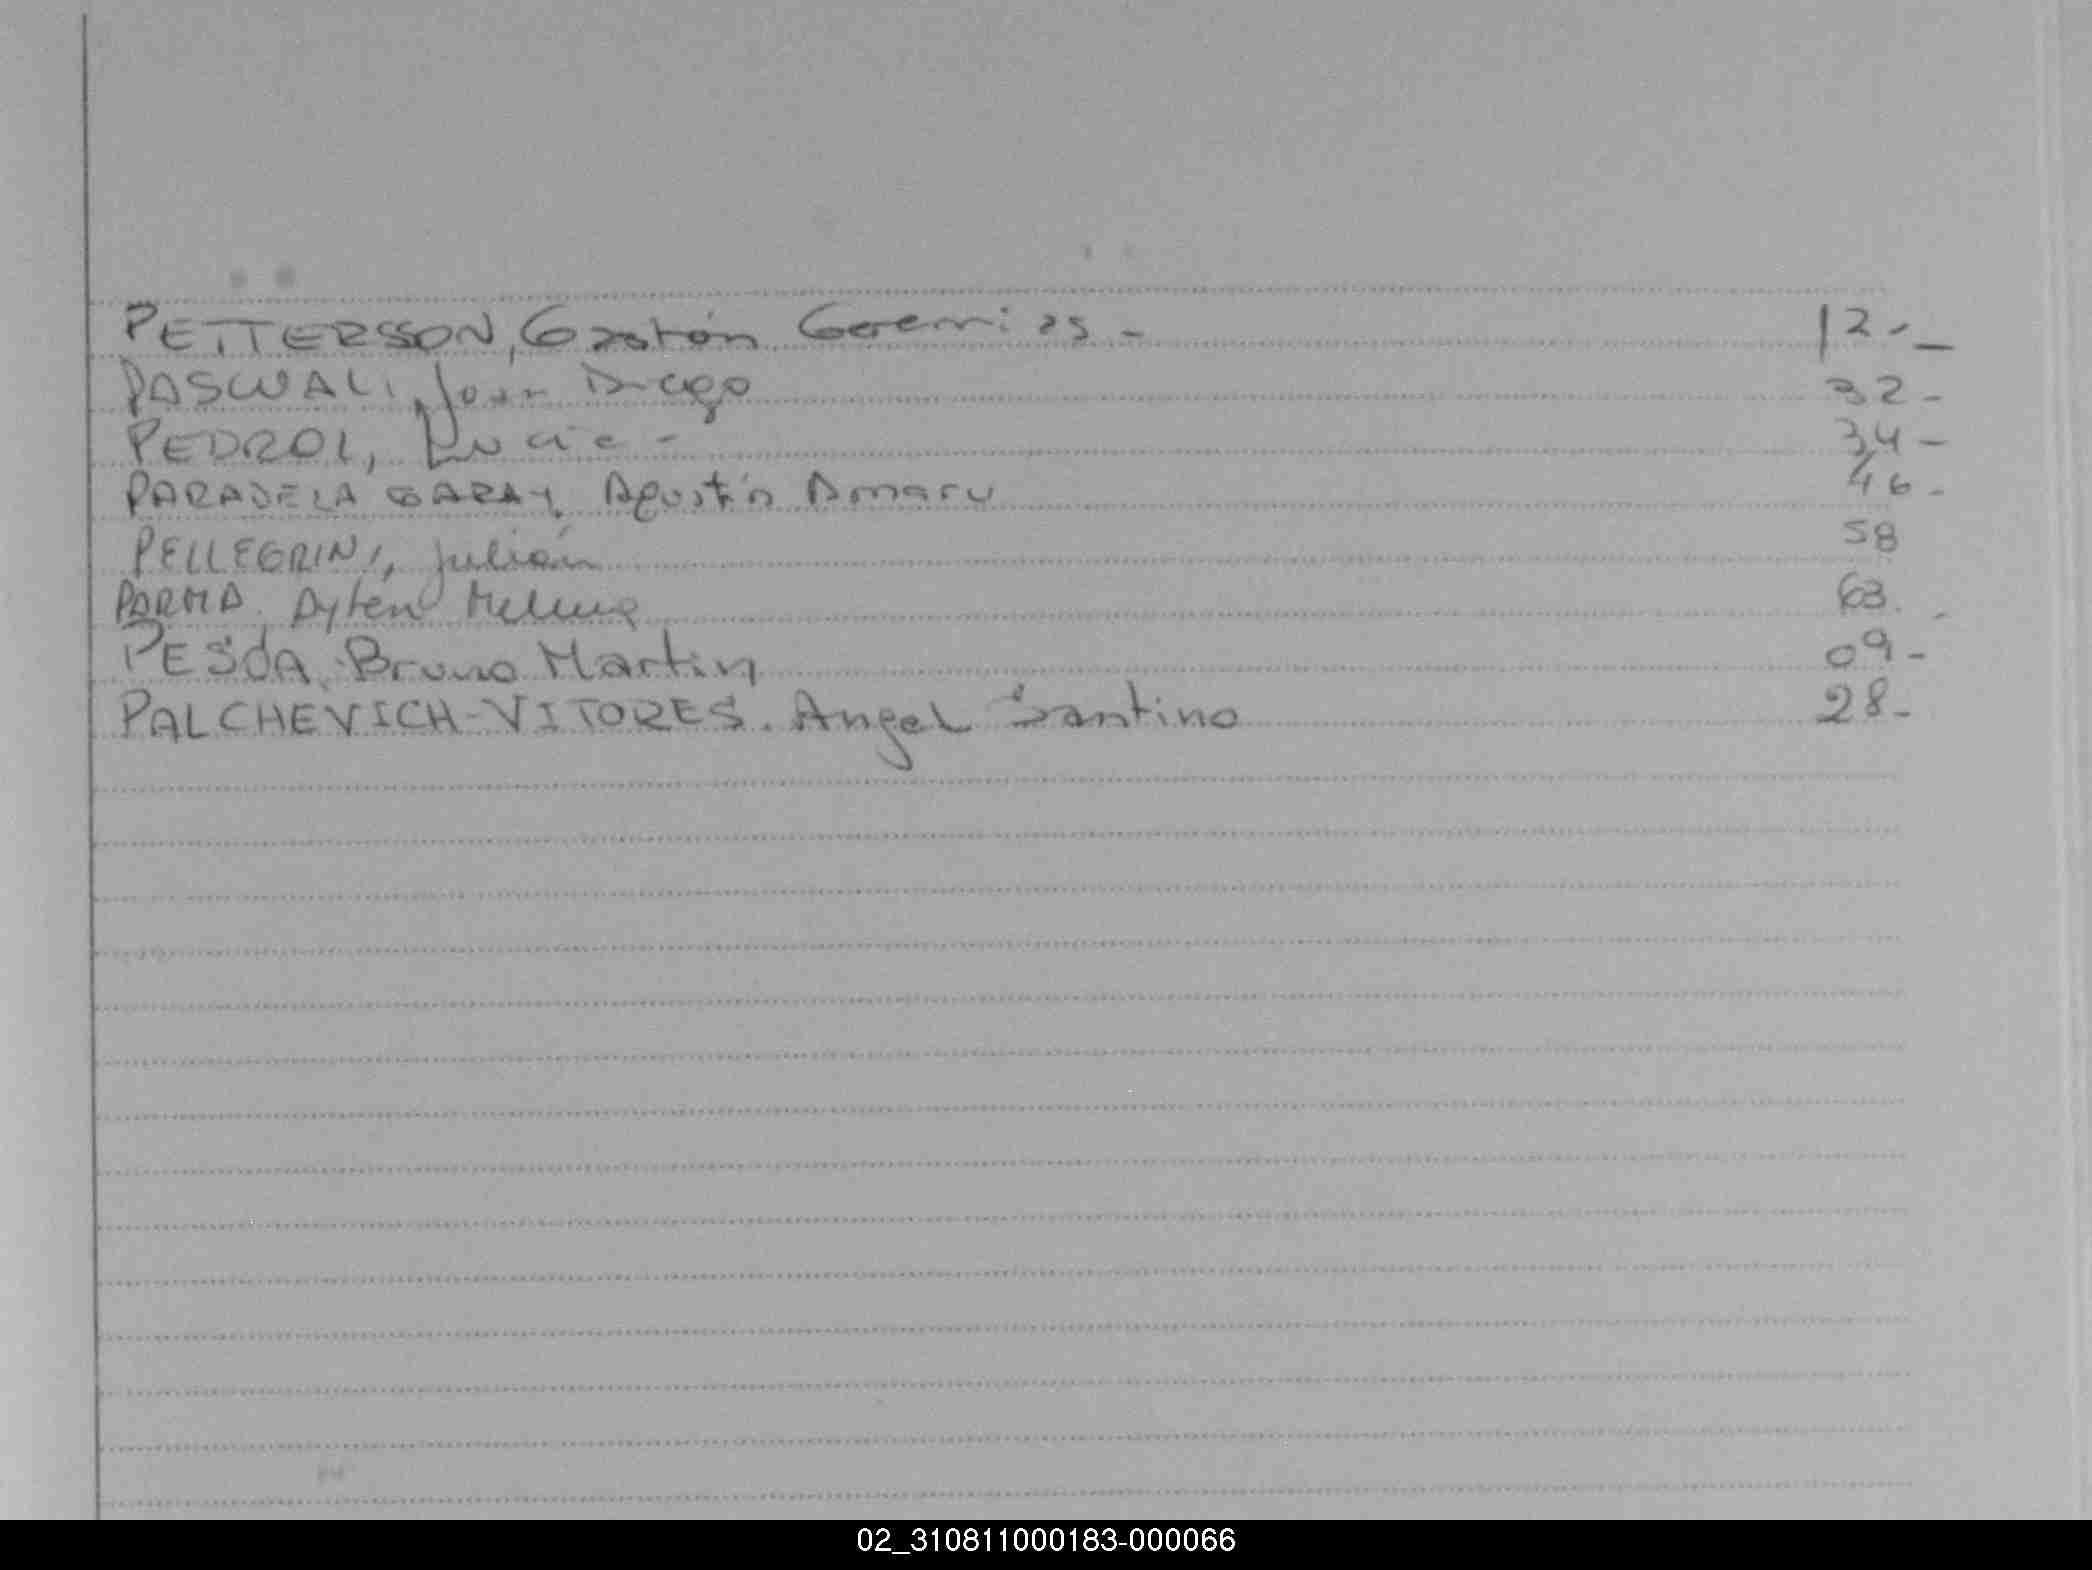 PETTERSON, Gastón Geremias - 12.-
PASCUALI, Juan Diego 32-
PEDROL, Lucia - 34-
PARADELA GARAY, Agustín Amaru 46-
PELLEGRINI, Julián 58
PARMA. Ayten Melina 63.-
PESOA, Bruno Martin 09-
PALCHEVICH-VITORES. Angel Santino 28-
02_310811000183-000066